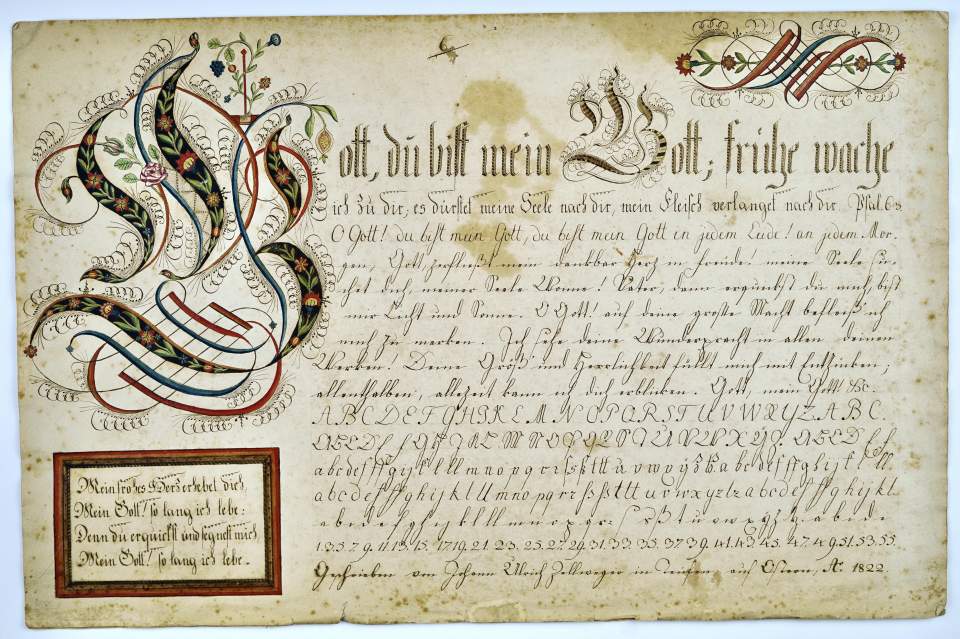 Gott, du bist mein Gott; frühe wache
ich zu dir, es dürstet meine Seele nach dir, mein Fleisch verlanget nach dir. Psal. 63
O Gott! du bist mein Gott, du bist mein Gott in jedem Leide! an jedem Mor-
gen, Gott, zerfließt mein dankbar Herz in Freude! meine Seele su-
chet dich, meiner Seele Wonne! Vater, dann erquickst du mich, bist
mir Licht und Sonne. O Gott! auf deine große Macht befleiß ich
mich zu merken. Ich sehe deine Wunderpracht in allen deinen
Werken! Deine Größ und Herrlichkeit füllt mich mit Entzücken;
allenthalben, allezeit kann ich dich erblicken. Gott, mein Gott! &c.
A B C D E F G H I K L M N O P Q R S T U V W X Y Z. A B C
A B C D E F G H I K L M N O P Q R S T U V W X Y Z. A B C D E F
a b c d e f f g i j k l l l m n o p q r r s ß t t u v w x y z a b c d e f f g h i j k l
a b c d e f f g h i j k l l m n o p q r r s ß t t t u v w x y z a b c d e f f g h i j k l
a b c d e f g h i j k l l l m n o p q r s ß t u v w x y z a b c d e
1.3.5.7.9.11.13.15.17.19.21.23.25.27.29.31.33.35.37.39.41.43.45.47.49.51.53.55
Geschrieben von Johann Ulrich Zellweger in Teufen, auf Ostern, Aº 1822.
Mein frohes Herz erhebet dich,
Mein Gott! so lang ich lebe:
Denn du erquickst und segnest mich,
Mein Gott! so lang ich lebe.